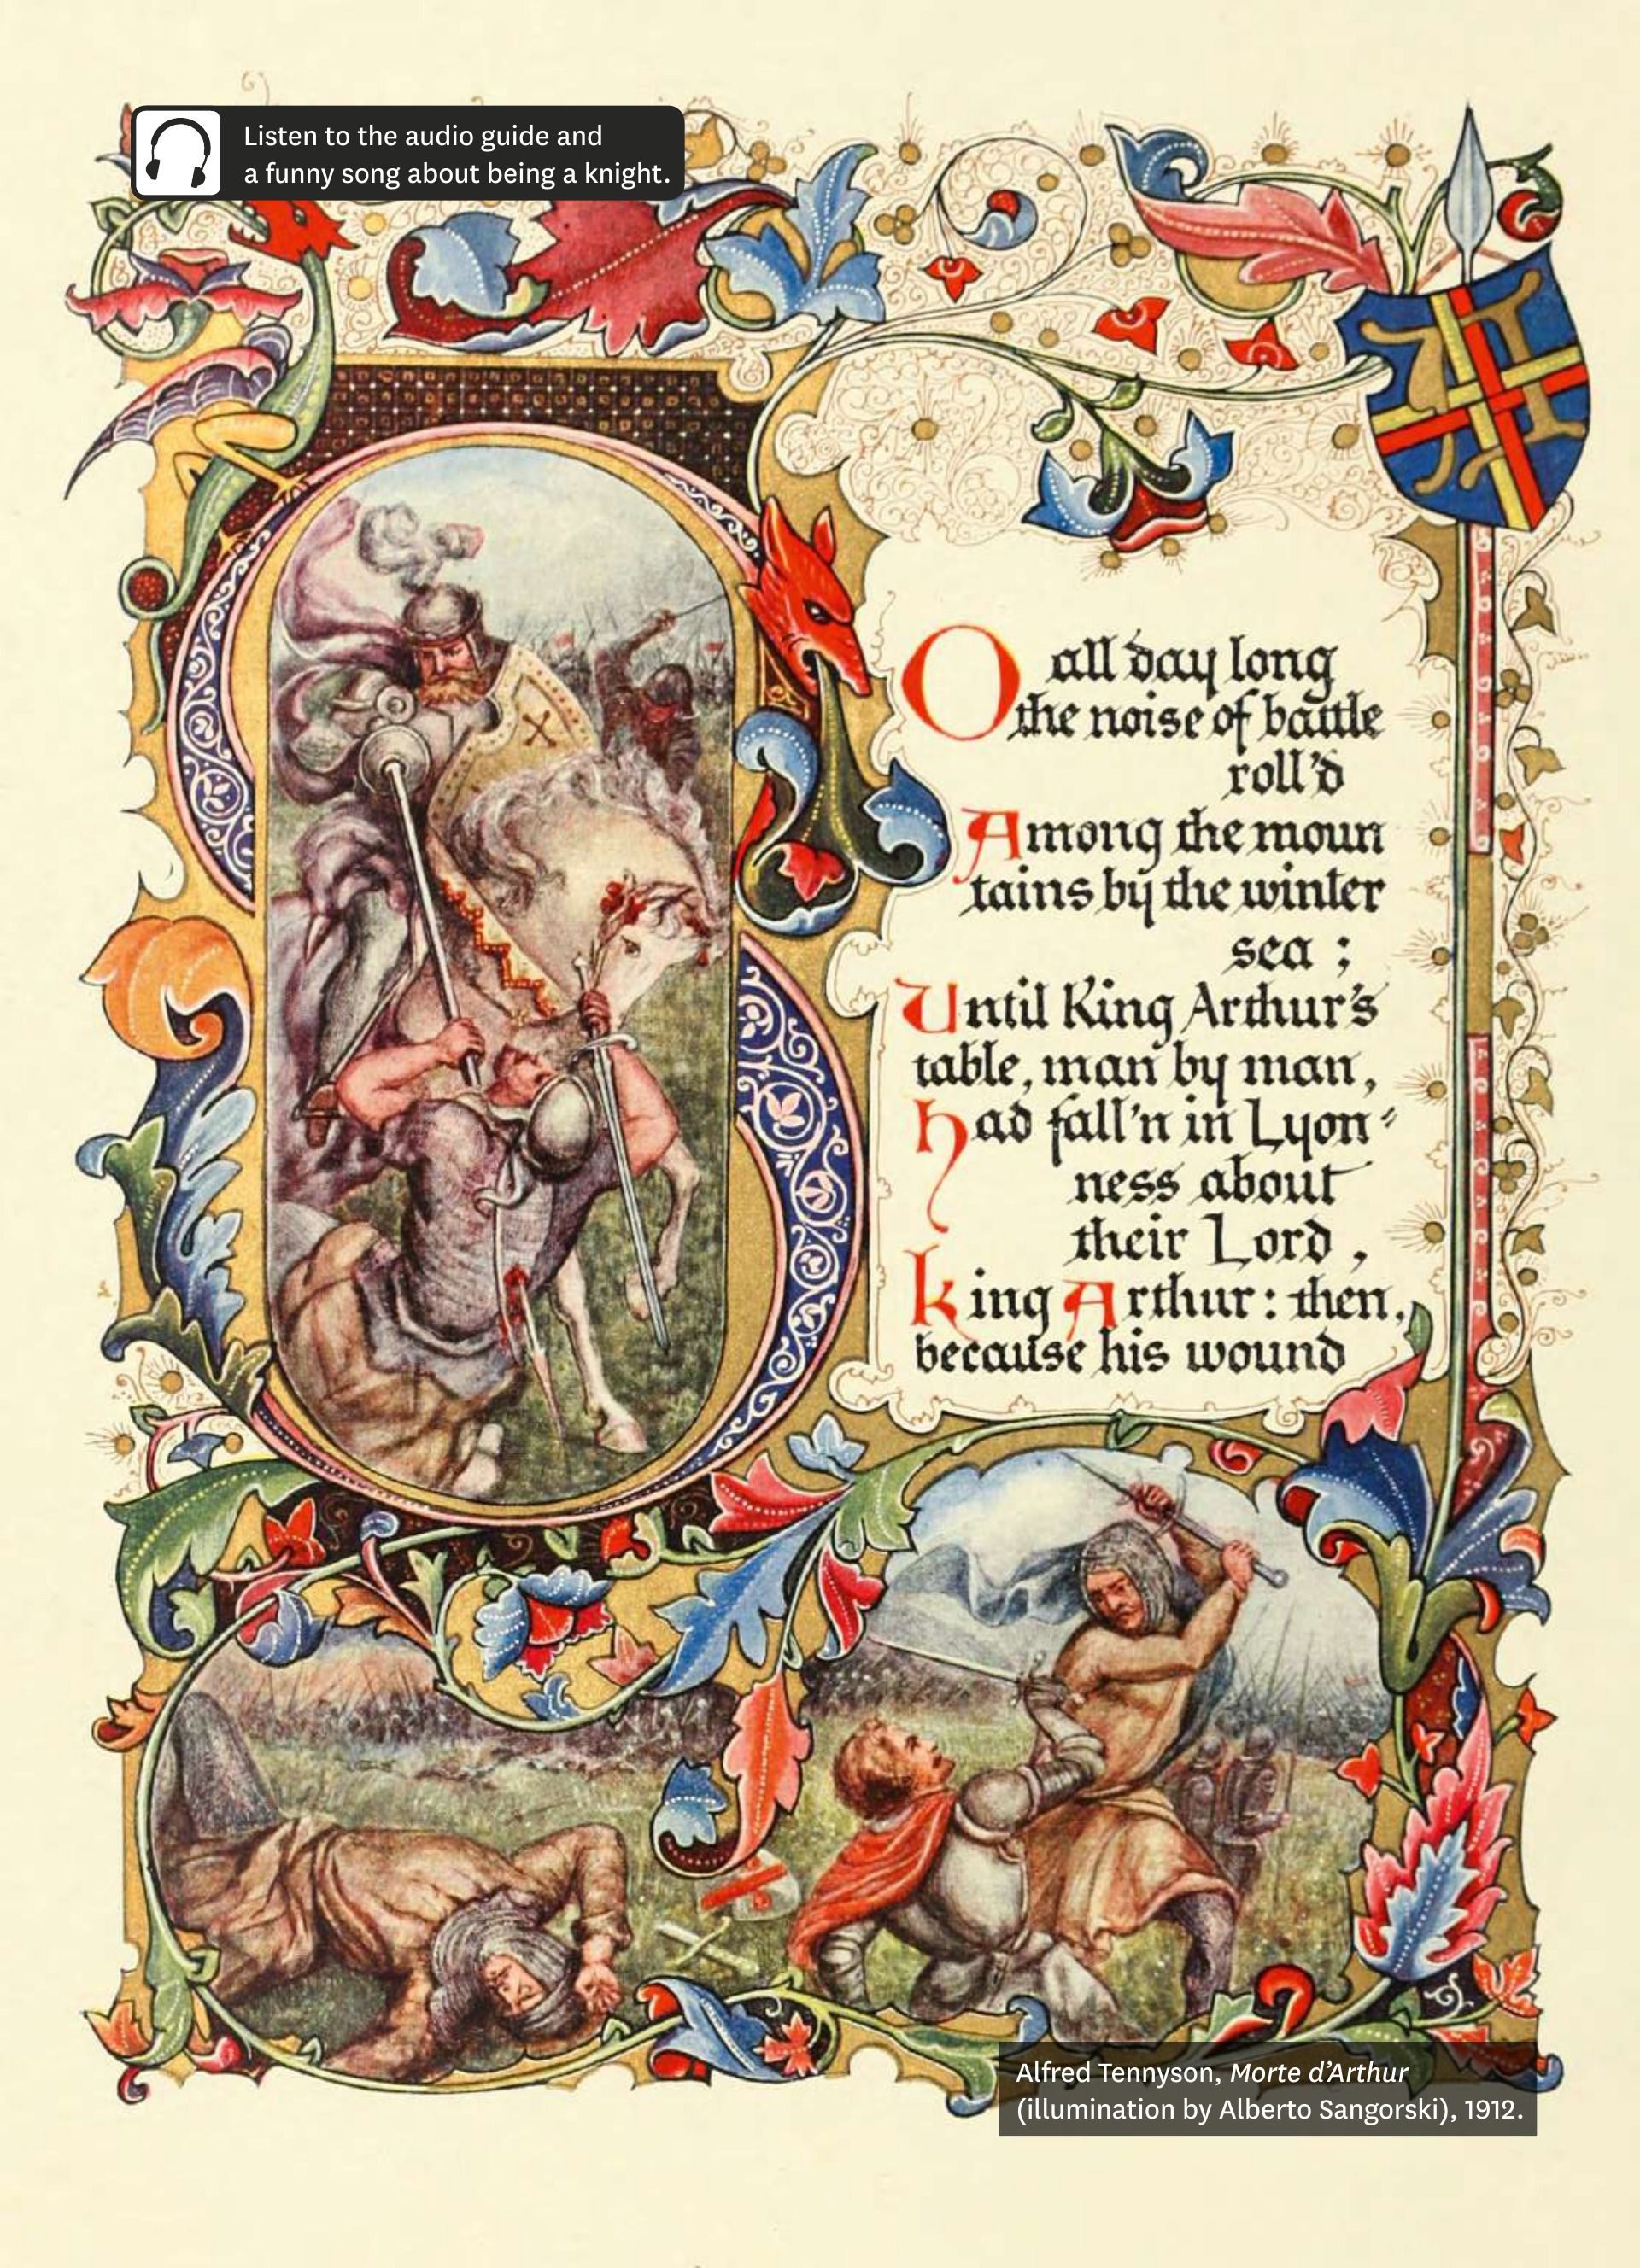 Listen to the audio guide and
a funny song about being a knight.
O all day long
the noise of battle
roll'd
Among the moun
tains by the winter
sea ;
Until King Arthur's
table, man by man,
had fall'n in Lyon-
ness about
their Lord,
king Arthur: then,
because his wound
Alfred Tennyson, Morte d'Arthur
(illumination by Alberto Sangorski), 1912.